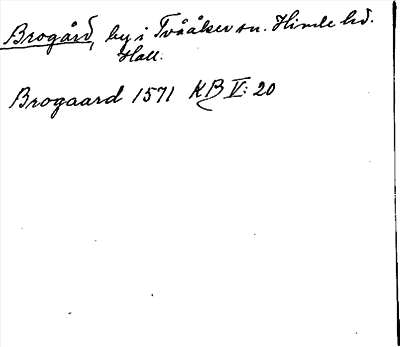 Brogård, by i Tvååker sn. Himle hd.
Hall.
Brogaard 1571 KB V: 20